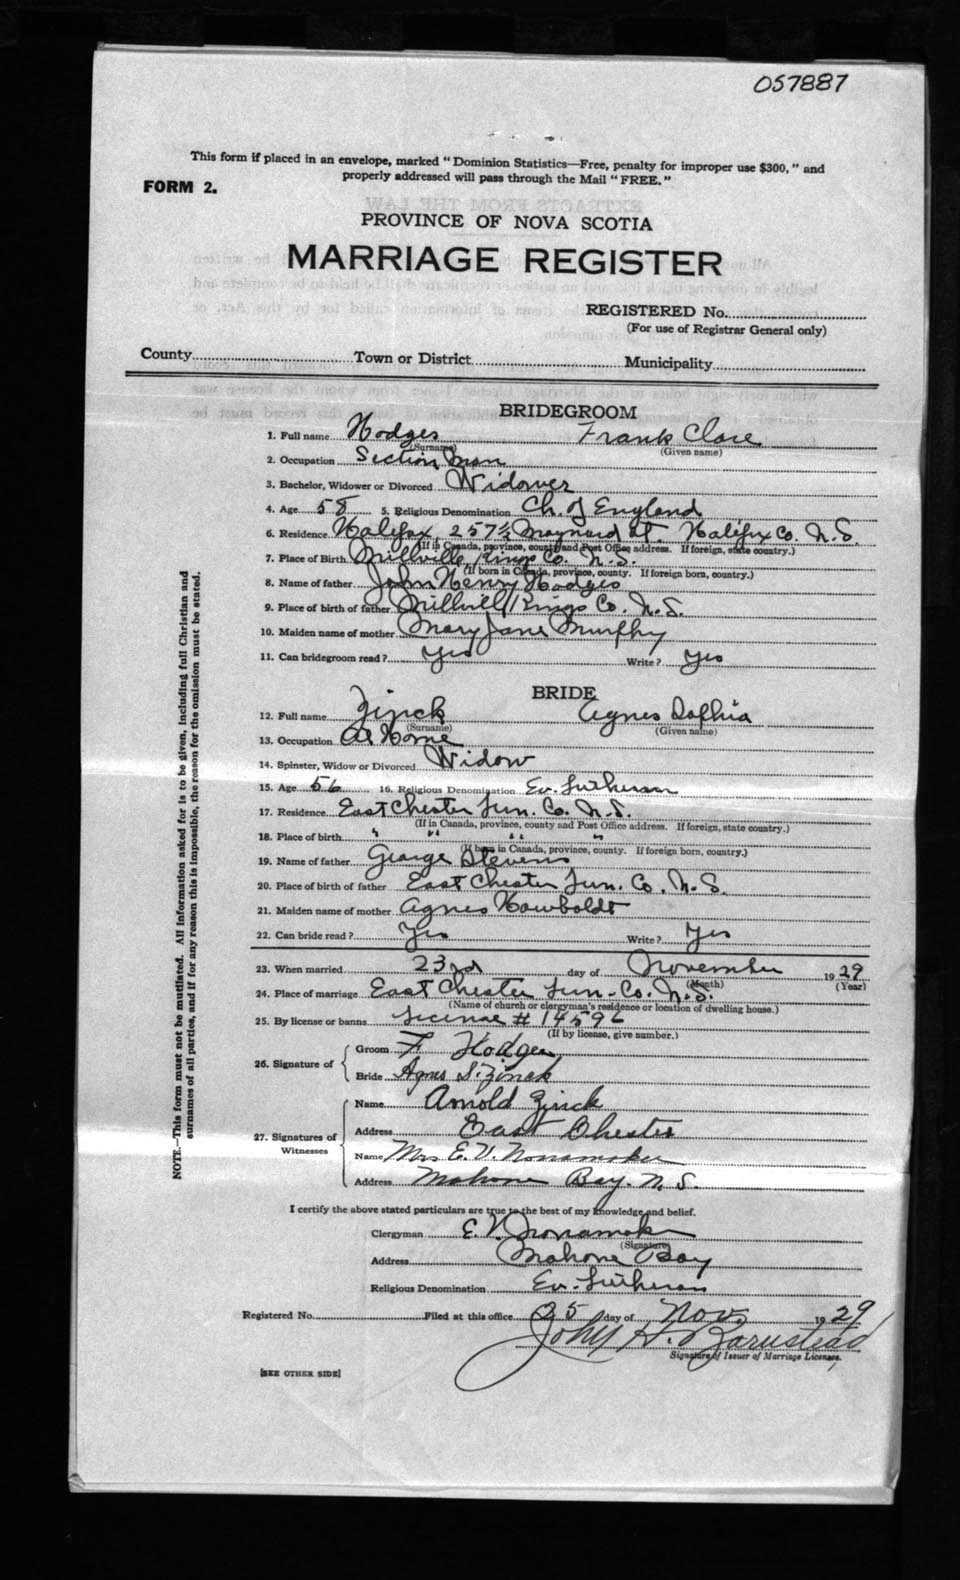 057887
This form if placed in an envelope, marked "Dominion Statistics—Free, penalty for improper use $300," and
properly addressed will pass through the Mail "FREE."
FORM 2.
PROVINCE OF NOVA SCOTIA
MARRIAGE REGISTER
REGISTERED No.
(For use of Registrar General only)
County Town or District Municipality
BRIDEGROOM
1. Full name Hodges Frank Clare
(Surname) (Given name)
2. Occupation Section Man
3. Bachelor, Widower or Divorced Widower
4. Age 58 5. Religious Denomination Ch. of England
6. Residence Halifax 257½ Maynard St. Halifax Co. N.S.
(If in Canada, province, county and Post Office address. If foreign, state country.)
7. Place of Birth Millville Kings Co. N.S.
(If born in Canada, province, county. If foreign born, country.)
8. Name of father John Henry Hodges
9. Place of birth of father Millvill Kings Co. N.S.
10. Maiden name of mother Mary Jane Murphy
11. Can bridegroom read? Yes Write? Yes
BRIDE
12. Full name Zinck Agnes Sophia
(Surname) (Given name)
13. Occupation At Home
14. Spinster, Widow or Divorced Widow
15. Age 56 16. Religious Denomination Ev. Lutheran
17. Residence East Chester Lun. Co. N.S.
(If in Canada, province, county and Post Office address. If foreign, state country.)
18. Place of birth " " " "
(If born in Canada, province, county. If foreign born, country.)
19. Name of father George Stevens
20. Place of birth of father East Chester Lun. Co. N.S.
21. Maiden name of mother Agnes Hawboldt
22. Can bride read? Yes Write? Yes
23. When married 23rd day of November 1929
(Month) (Year)
24. Place of marriage East Chester Lun. Co. N.S.
(Name of church or clergyman's residence or location of dwelling house.)
25. By license or banns License # 14596
(If by license, give number.)
26. Signature of
Groom F Hodges
Bride Agnes S. Zinck
27. Signatures of Witnesses
Name Arnold Zinck
Address East Chester
Name Mrs E. V. Nonamaker
Address Mahone Bay. N.S.
I certify the above stated particulars are true to the best of my knowledge and belief.
Clergyman E. V. Nonamaker
(Signature)
Address Mahone Bay
Religious Denomination Ev. Lutheran
Registered No. Filed at this office 25 day of Nov. 1929
John H. Zarustead
Signature of Issuer of Marriage Licenses.
[SEE OTHER SIDE]
NOTE.—This form must not be mutilated. All information asked for is to be given, including full Christian and
surnames of all parties, and if for any reason this is impossible, the reason for the omission must be stated.